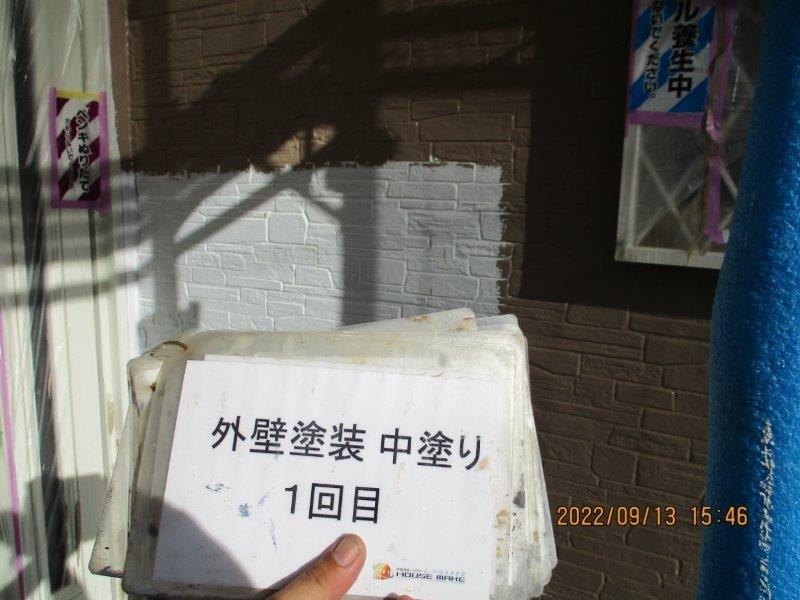 ル養生中
ないでください。
ペンキぬりたて
外壁塗装 中塗り
1回目
HOUSE MAKE
2022/09/13 15:46